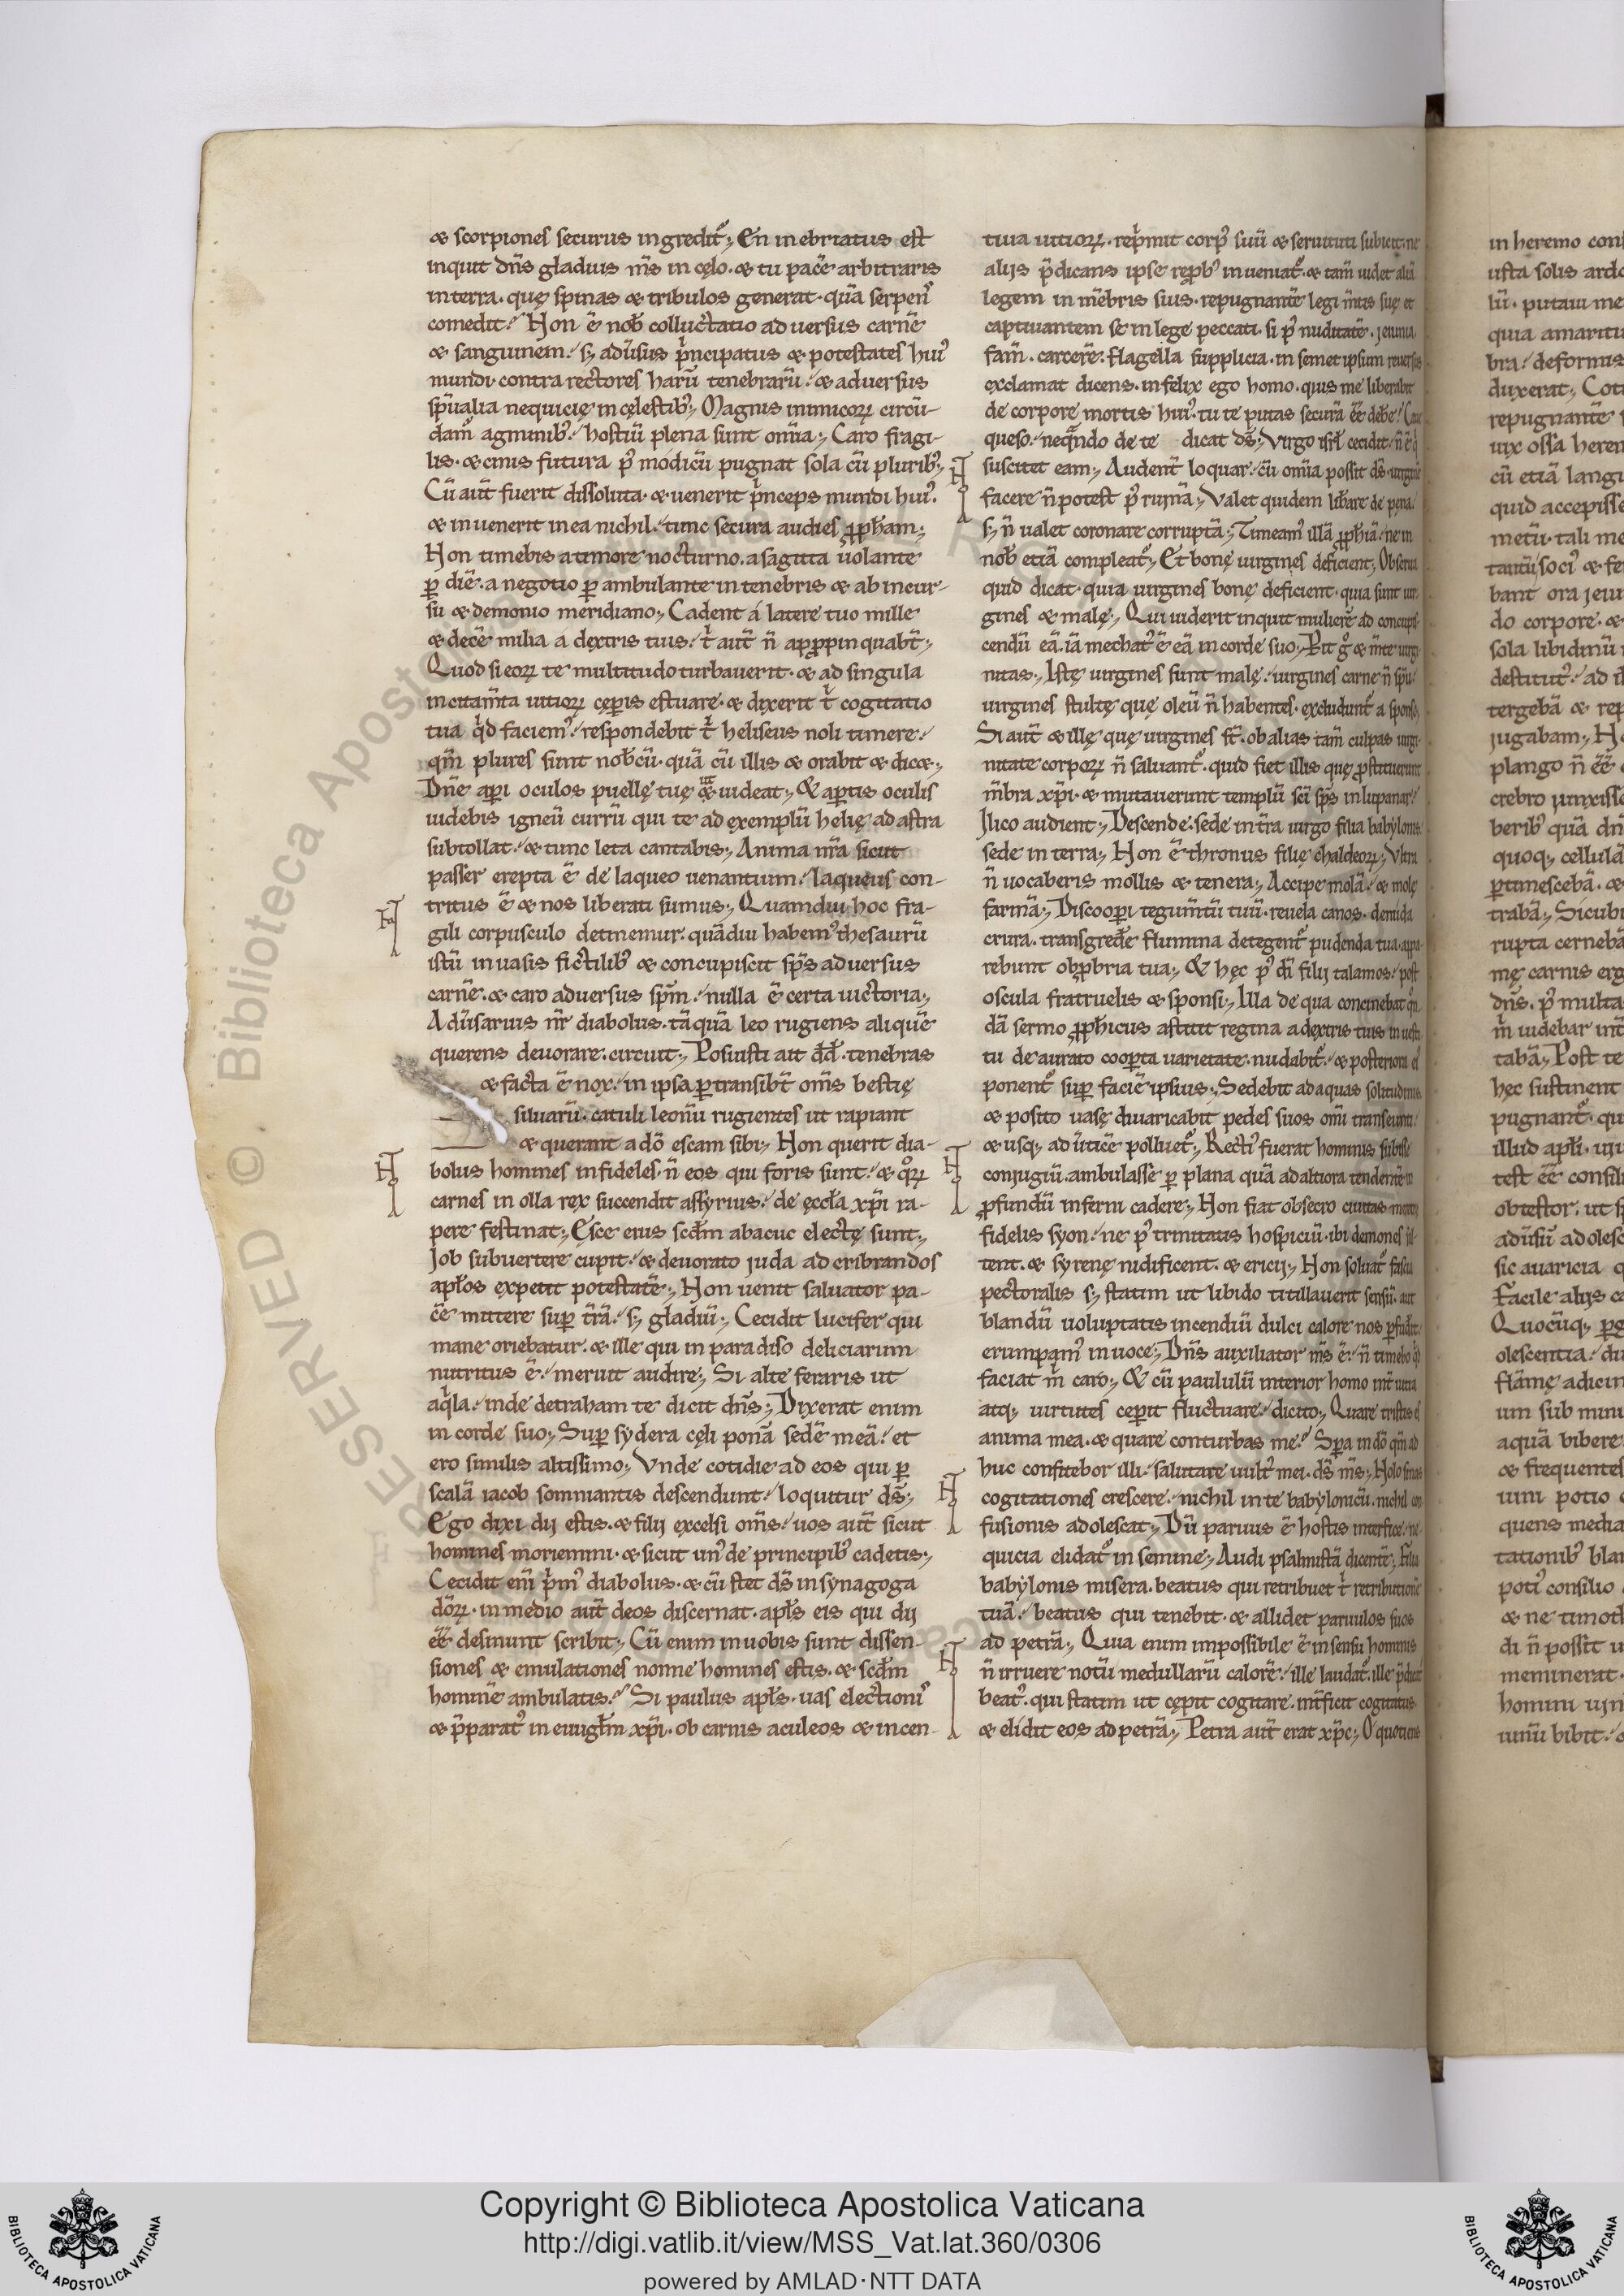 & scorpiones securus ingredit᷑; En inebriatus est
inquit dñs gladius m̃s in cęlo · & tu pacẽ arbitraris
in terra · quę spinas & tribulos generat · quã serpen᷒
comedit; Non ẽ nob̃ colluctatio adversus carnẽ
& sanguinem; s; adũsus p̃ncipatus & potestates hui᷒
mundi · contra rectores harũ tenebrarũ; & adversus
spũalia nequicię in cęlestib᷒; Magnis inimicoꝝ circũ-
dam᷒ agminib᷒; hostiũ plena sunt omĩa; Caro fragi-
lis · & cinis futura p᷒ modicũ pugnat sola cũ plurib᷒;
Cũ aut̃ fuerit dissoluta · & venerit p̃nceps mundi hui᷒.
& invenerit in ea nichil; tunc secura audies ꝓph̃am;
Non timebis a timore nocturno. a sagitta volante
ꝑ diẽ. a negotio ꝑambulante in tenebris & ab incur-
su & demonio meridiano; Cadent á latere tuo mille
& decẽ milia a dextris tuis; t̃ aut̃ ñ apꝓpinquabt̃;
Quod si eoꝝ te multitudo turbaverit · & ad singula
incitam̃ta vitioꝝ cęꝑis estuare · & dixerit t̃ cogitatio
tua q̃d faciem᷒; respondebit t̃ heliseus noli timere;
qm̃ plures sunt nob̃cũ · quã cũ illis & orabit & dic&;
Dñe aꝑi oculos puellę tuę ut videat; & aꝑtis oculis
videbis igneũ currũ qui te ad exemplũ helię ad astra
subtollat; & tunc leta cantabis; Anima nr̃a sicut
passer erepta ẽ de laqueo venantium; laqueus con-
tritus ẽ & nos liberati sumus; Quamdiu hoc fra-
gili corpusculo detinemur. quãdiu habem᷒ thesaurũ
istũ in vasis fictilib᷒ & concupiscit sp̃s adversus
carnẽ. & caro adversus sp̃m; nulla ẽ certa victoria;
Adũsarius nr̃ diabolus. tãquã leo rugiens aliquẽ
querens devorare. circuit; Posuisti ait d̃d. tenebras
& facta ẽ nox; in ipsa ꝑtransibt̃ om̃s bestię
silvarũ · catuli leonũ rugientes ut rapiant
& querant a dõ escam sibi; Non querit dia-
bolus homines infideles ñ eos qui foris sunt; & qͦꝝ
carnes in olla rex succendit assyrius; de ęccl̃a xp̃i ra-
pere festinat; Esce eius scd̃m abacuc electę sunt;
Job subvertere cupit; & devorato juda ad cribrandos
apl̃os expetit potestatẽ; Non venit salvator pa-
cẽ mittere suꝑ t̃rã; s; gladiũ; Cecidit lucifer qui
mane oriebatur. & ille qui in paradiso deliciarum
nutritus ẽ; meruit audire; Si alte feraris ut
aq̃la; inde detraham te dicit dñs; Dixerat enim
in corde suo; Suꝑ sydera cęli ponã sedẽ meã; et
ero similis altissimo; Unde cotidie ad eos qui ꝑ
scalã iacob somniantis descendunt; loquitur d̃s;
Ego dixi dij estis. & filij excelsi om̃s; vos aut̃ sicut
homines moriemini · & sicut un᷒ de principib᷒ cadetis;
Cecidit eni᷒ p̃m᷒ diabolus · & cũ stet d̃s in synagoga
dõꝝ · in medio aut̃ deos discernat · apl̃s eis qui dij
eẽ desinunt scribit; Cũ enim in vobis sunt dissen-
siones & emulationes nonne homines estis · & scd̃m
hominẽ ambulatis; Si paulus apl̃s · vas election᷒
& p̃parat᷒ in euugl̃m xp̃i · ob carnis aculeos & incen-
tiva vitioꝝ · rep̃mit corp᷒ suũ & servituti subicit · ne
alijs p̃dicans ipse reꝓb᷒ inveniat᷑ · & tam̃ videt aliã
legem in mẽbris suis · repugnantẽ legi m̃tis suę et
captivantem se in lege peccati · si p᷒ nuditatẽ · jeiunia.
fam̃ · carcerẽ. flagella supplicia · in semet ipsum reversus
exclamat dicens · infelix ego homo · quis me liberabit
de corpore mortis hui᷒. tu te putas securã eẽ debe; Cave
queso; neq̃ndo de te dicat d̃s; Virgo isrl̃ cecidit; ñ ẽ q̃
suscitet eam; Audent̃ loquar; cũ omĩa possit d̃s · virginẽ
facere ñ potest p᷒ ruinã; Valet quidem lib̃are de pena.
s; ñ valet coronare corruptã; Timeam᷒ illã ꝓph̃iã; ne in
nob̃ etiã compleat᷑; Et bonę virgines deficient; Observa
quid dicat · quia virgines bonę deficient · quia sunt vir-
gines & malę; Qui viderit inquit mulierẽ ad concupis-
cendũ eã. iã mechat᷒ ẽ eã in corde suo; Pit gͦ & m̃te virgi-
nitas; Istę virgines sunt malę; virgines carne ñ sp̃u;
virgines stultę quę oleũ ñ habentes · excludunt᷑ a sponso;
Si aut̃ & illę quę virgines st̃. ob alias tam̃ culpas virgi-
nitate corpoꝝ ñ salvant᷑ · quid fiet illis quę ꝓstituerunt
m̃bra xp̃i · & mutaverunt templũ sc̃i sp̃s in lupanar;
Ilico audient; Descende · sede in t̃ra virgo filia babylonis.
sede in terra; Non ẽ thronus filię chaldeoꝝ; Ultra
ñ vocaberis mollis & tenera; Accipe molã; & mole
farinã; Discooꝑi tegum̃tũ tuũ · revela canos · denuda
crura. transgredẽ flumina detegent᷑ pudenda tua · appa-
rebunt obꝓbria tua; & hęc p᷒ d̃i filij talamos; post
oscula fratruelis & sponsi; Illa de qua concinebat qͦn-
dã sermo ꝓph̃icus astitit regina a dextris tuis in vesti-
tu deaurato cooꝑta varietate. nudabit᷑; & posteriora ei᷒
ponent᷑ suꝑ faciẽ ipsius; Sedebit ad aquas solitudinis.
& posito vase divaricabit pedes suos omĩ transeunti;
& usq; ad ũticẽ polluet᷑; Recti᷒ fuerat hominis subisse
conjugiũ. ambulasse ꝑ plana quã ad altiora tendentẽ in
ꝓfundũ inferni cadere; Non fiat obsecro civitas meretrix
fidelis syon; ne p᷒ trinitatis hospiciũ · ibi demones sal-
tent. & syrenę nidificent. & ericij; Non solvat᷑ fascia
pectoralis s; statim ut libido titillaverit sensũ. aut
blandũ voluptatis incendiũ dulci calore nos ꝑfudit.
erumpam᷒ in voce; Dñs auxiliator m̃s ẽ; ñ timebo q̃d
faciat m̃ caro; & cũ paululũ interior homo int̃ vitia
atq; virtutes ceꝑit fluctuare; dicito; Quare tristis es
anima mea. & quare conturbas me; Sꝑa in dõ qm̃ ad
huc confitebor illi; salutare vult᷒ mei · d̃s m̃s; Nolo sinas
cogitationes crescere; nichil in te babylonicũ. nichil con-
fusionis adolescat; Dũ parvus ẽ hostis interfice; ne-
quicia elidat᷑ in semine; Audi psalmistã dicentẽ; Filia
babylonis misera. beatus qui retribuet t̃ retributionẽ
tuã; beatus qui tenebit · & allidet parvulos suos
ad petrã; Quia enim impossibile ẽ in sensũ hominis
ñ irruere notũ medullarũ calorẽ; ille laudat᷑. ille p̃dicat᷑
beat᷒. qui statim ut cępit cogitare. int̃ficit cogitatus.
& elidit eos ad petrã; Petra aut̃ erat xp̃c; O quotiens
in heremo
usta solis
lũ · putavi me
quia
bra; deformis
duxerat; Coti
repugnantẽ
vix ossa
cũ etiã
quid
metũ · tali me
tantũ soci᷒ &
bant ora
do corpore. &
sola libidinũ
destitut᷒; ad
tergebã &
jugabam;
plango ñ eẽ
crebro
berib᷒ quã
quoq; cellulã
ꝑtimescebã. &
trabã; Sicubi
rupta
mę carnis
dñs. p᷒ multa
m̃ videbar
tabã; Post
hęc sustinent
pugnant᷑.
illud apl̃i.
test eẽ
obtestor. ut
adũsũ
sic avaricia
Facile alijs
Quocũq;
olescentia;
flãmę
um sub
aquã bibere
& frequentes
vini potio
quens media
tationib᷒
poti᷒ consilio
& ne
di ñ possit
meminerat
homini
vinũ bibit;
© Biblioteca Apostolica
RESERVED
Copyright © Biblioteca Apostolica Vaticana
http://digi.vatlib.it/view/MSS_Vat.lat.360/0306
powered by AMLAD·NTT DATA
BIBLIOTECA APOSTOLICA VATICANA
BIBLIOTECA APOSTOLICA VATICANA